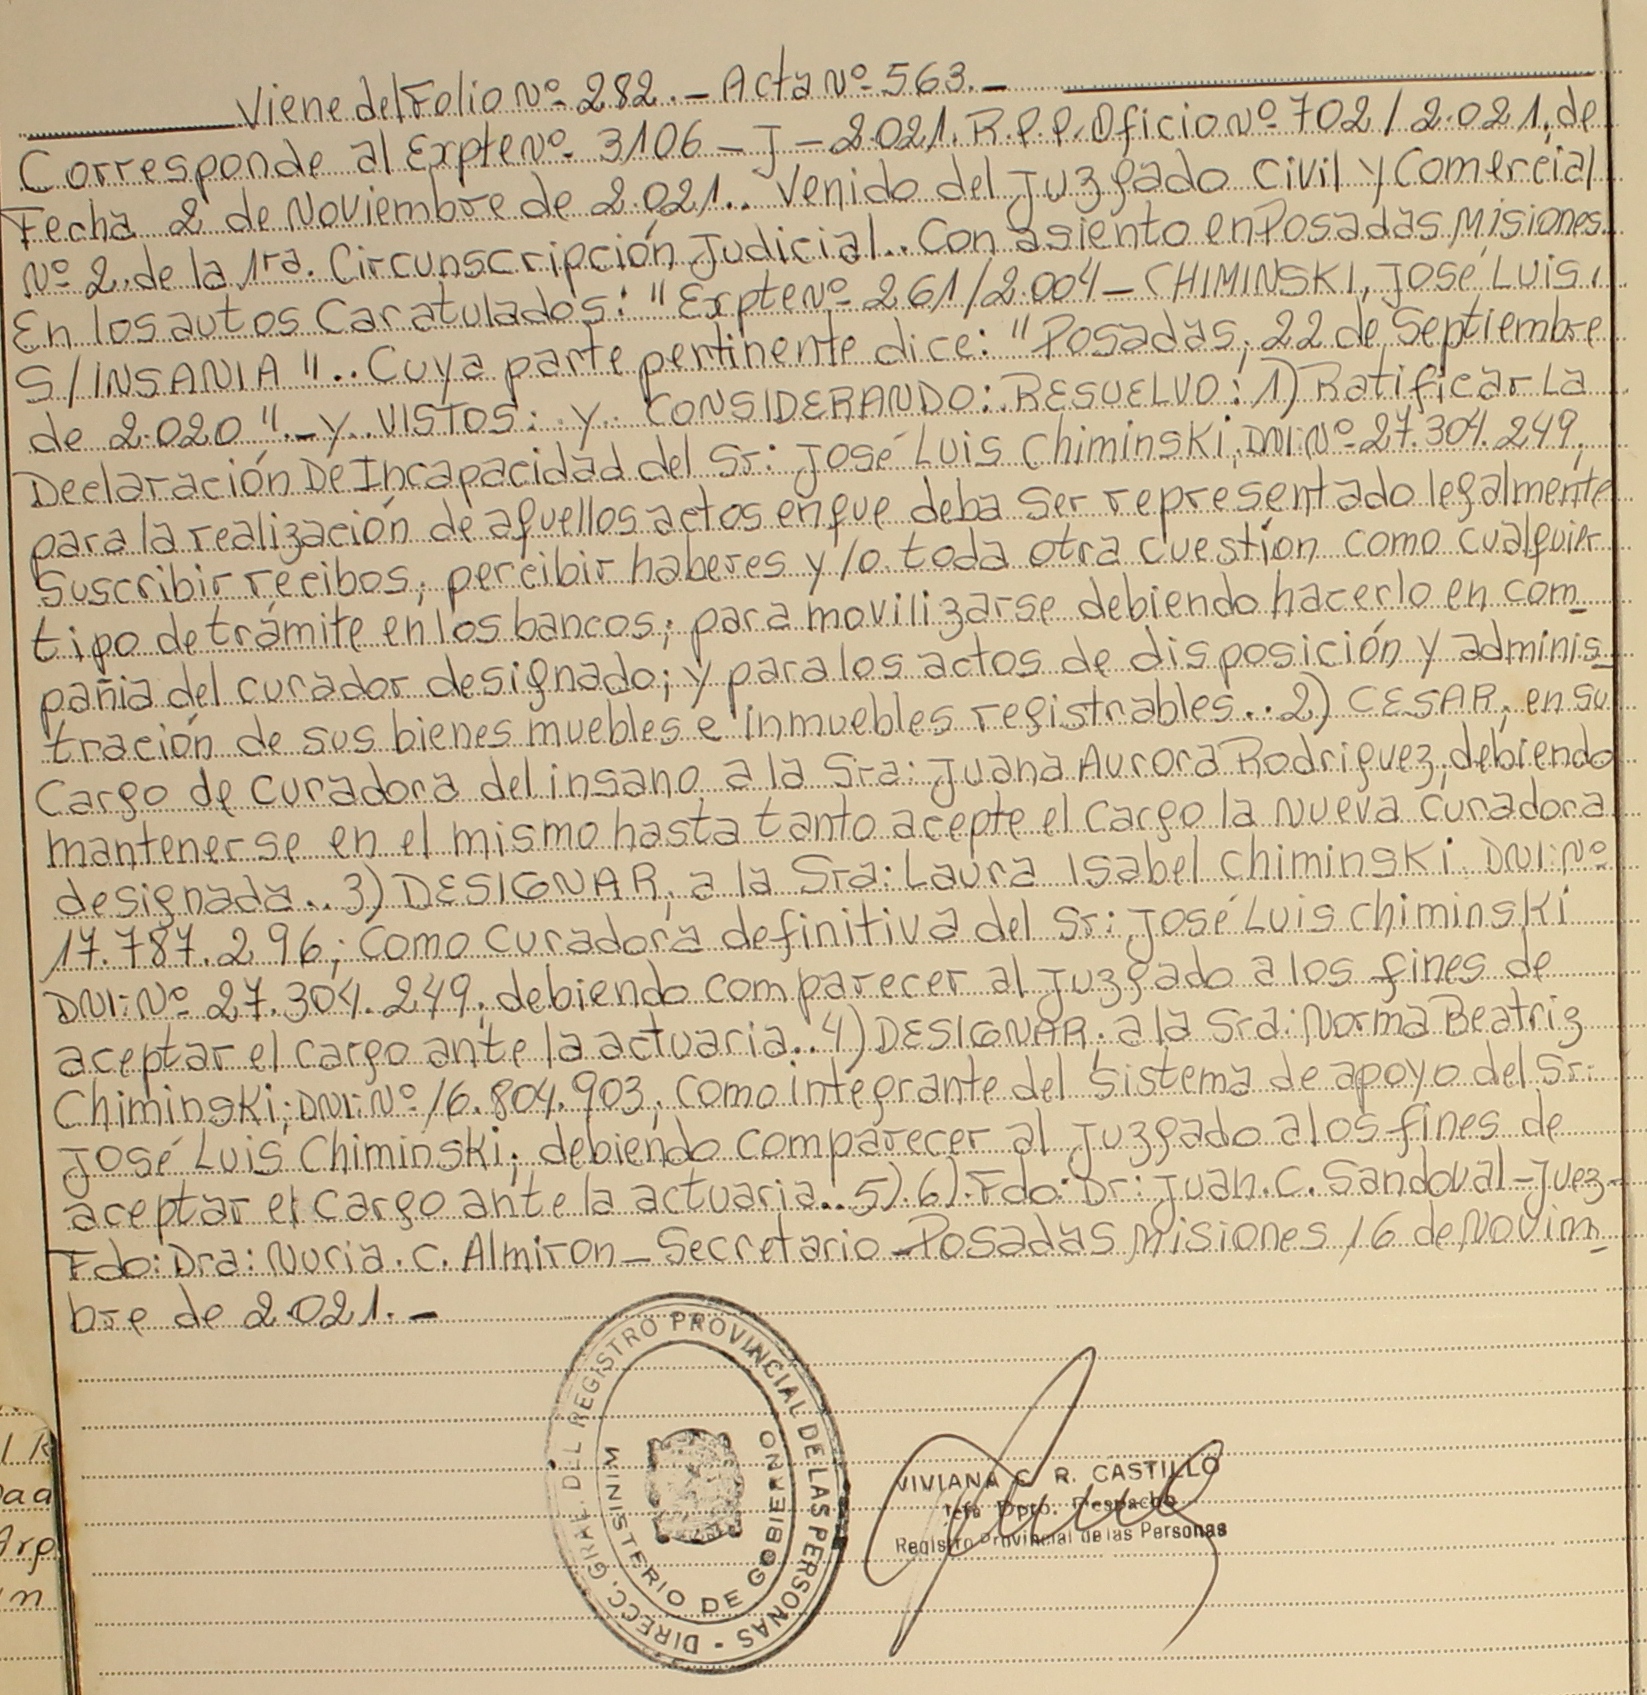 Viene del Folio Nº 282.- Acta Nº 563.-
Corresponde al Expte Nº 3106-J-2.021. R.P.P. Oficio Nº 702/2.021, de
Fecha 2 de Noviembre de 2.021.. Venido del Juzgado Civil y Comercial
Nº 2, de la 1ra. Circunscripción Judicial.. Con asiento en Posadas Misiones.
En los autos Caratulados: "Expte Nº 261/2.004 - CHIMINSKI, JOSÉ LUIS,
S/INSANIA".. Cuya parte pertinente dice: "Posadas, 22 de Septiembre
de 2.020".- y.. VISTOS: y.. CONSIDERANDO: RESUELVO: 1) Ratificar La
Declaración De Incapacidad del Sr: José Luis Chiminski, DNI: Nº 27.304.249,
para la realización de aquellos actos en que deba ser representado legalmente
suscribir recibos; percibir haberes y/o toda otra cuestión como cualquier
tipo de trámite en los bancos; para movilizarse debiendo hacerlo en com_
pañia del curador designado; y para los actos de disposición y adminis_
tración de sus bienes muebles e inmuebles registrables.. 2) CESAR, en su
Cargo de curadora del insano, a la Sra: Juana Aurora Rodriguez, debiendo
mantenerse en el mismo hasta tanto acepte el cargo la nueva curadora
designada.. 3) DESIGNAR, a la Sra: Laura Isabel Chiminski. DNI: Nº
17.787.296; como curadora definitiva del Sr: José Luis Chiminski
DNI: Nº 27.304.249, debiendo comparecer al Juzgado a los fines de
aceptar el cargo ante la actuaria.. 4) DESIGNAR, a la Sra: Norma Beatriz
Chiminski; DNI: Nº 16.804.903, Como integrante del sistema de apoyo del Sr:
José Luis Chiminski; debiendo comparecer al Juzgado a los fines de
aceptar el cargo ante la actuaria.. 5). 6). Fdo: Dr: Juan. C. Sandoval - Juez-
Fdo: Dra: Nuria. C. Almiron - Secretario - Posadas Misiones 16 de Noviem_
bre de 2.021.-
DIRECC. GRAL. DEL REGISTRO PROVINCIAL DE LAS PERSONAS -
MINISTERIO DE GOBIERNO
VIVIANA C. R. CASTILLO
Jefa Dpto. Despacho
Registro Provincial de las Personas